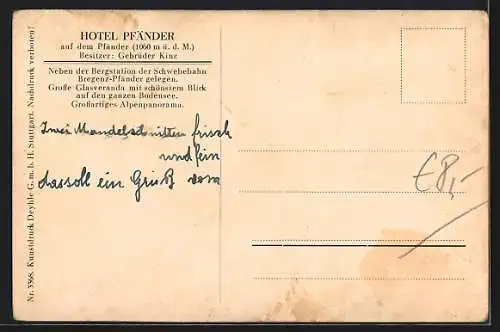 HOTEL PFÄNDER
auf dem Pfänder (1060 m ü. d. M.)
Besitzer: Gebrüder Kinz
Neben der Bergstation der Schwebebahn
Bregenz-Pfänder gelegen.
Große Glasveranda mit schönstem Blick
auf den ganzen Bodensee.
Großartiges Alpenpanorama.
Zwei Mandelschnitten frisch
und fein
dassoll ein Gruß vom
€8,-
Nr. 3368. Kunstdruck Deyhle G. m. b. H. Stuttgart. Nachdruck verboten!